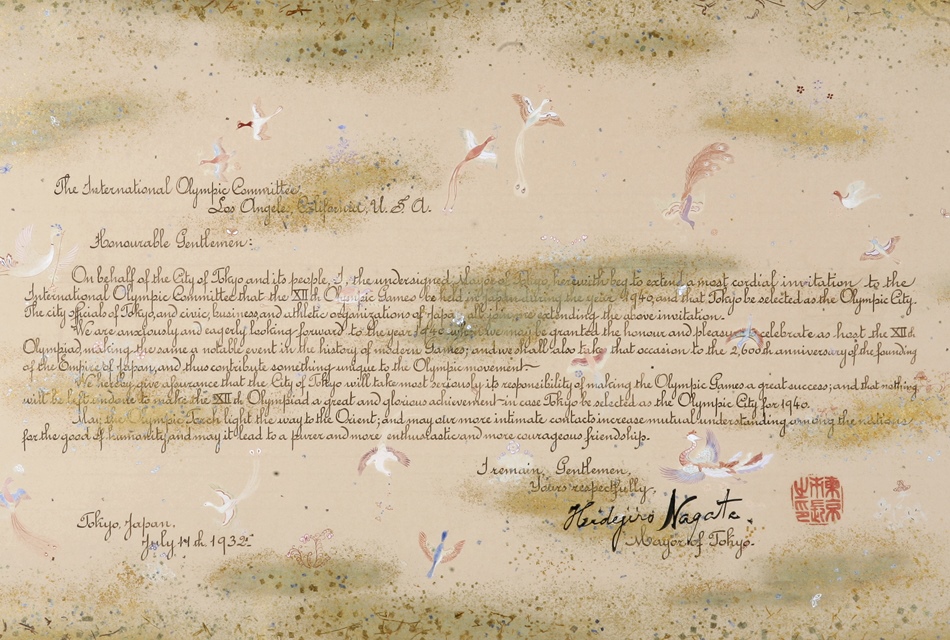 The International Olympic Committee
Los Angeles, California, U. S. A.
Honourable Gentlemen:
On behalf of the City of Tokyo and its people, I, the undersigned Mayor of Tokyo, herewith beg to extend a most cordial invitation to the
International Olympic Committee that the XIIth Olympic Games be held in Japan during the year 1940, and that Tokyo be selected as the Olympic City.
The city officials of Tokyo, and civic, business, and athletic organizations of Japan all join extending the above invitation.
We are anxiously and eagerly looking forward to the year 1940 when we may be granted the honour and pleasure celebrate as host the XIIth
Olympiad, making the same a notable event in the history of modern Games; and we shall also that occasion to the 2,600th anniversary of the founding
of the Empire of Japan, and thus contribute something unique to the Olympic movement—
We hereby give assurance that the City of Tokyo will take most seriously its responsibility of making the Olympic Games a great success; and that nothing
will be left undone to make the XIIth Olympiad a great and glorious achievement—in case Tokyo be selected as the Olympic City for 1940.
May the Olympic Torch light the way to the Orient; and may our more intimate contacts increase mutual understanding among the nations
for the good of humanity and may it lead to a purer and more enthusiastic and more courageous friendship.
I remain, Gentlemen,
Yours respectfully
Hidejiro Nagata.
Mayor of Tokyo.
東京
市長
之印
Tokyo, Japan.
July 1932